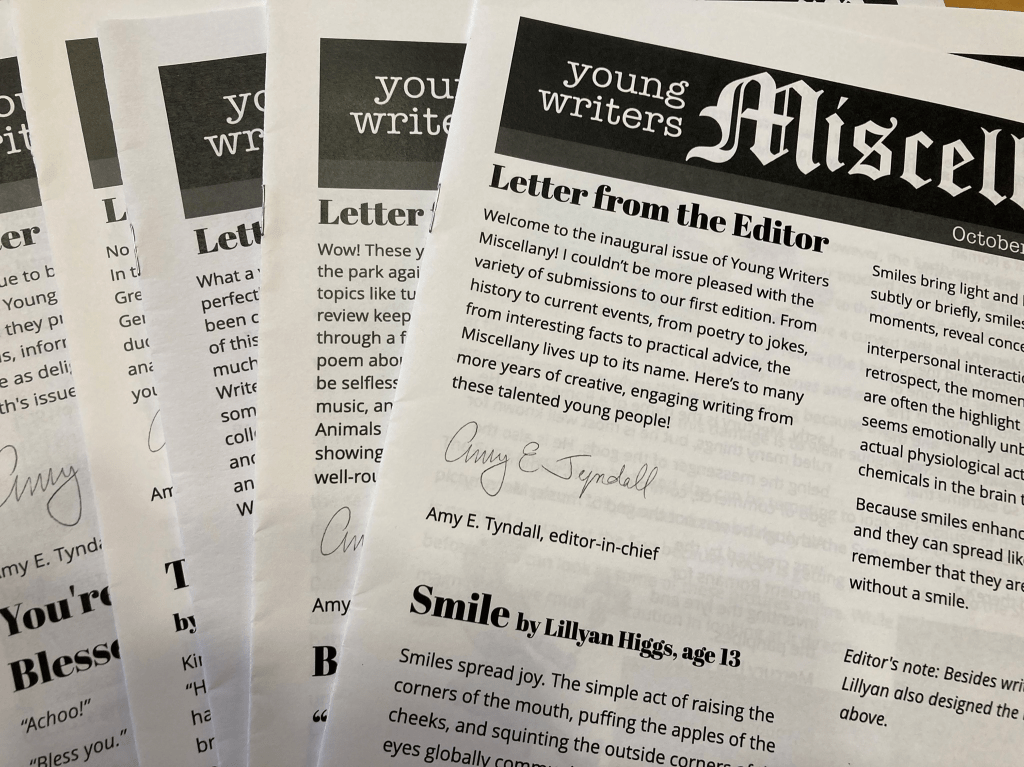 young
writers
Miscell
October
Letter from the Editor
Welcome to the inaugural issue of Young Writers
Miscellany! I couldn't be more pleased with the
variety of submissions to our first edition. From
history to current events, from poetry to jokes,
from interesting facts to practical advice, the
Miscellany lives up to its name. Here's to many
more years of creative, engaging writing from
these talented young people!
Amy E Tyndall
Amy E. Tyndall, editor-in-chief
Smile by Lillyan Higgs, age 13
Smiles spread joy. The simple act of raising the
corners of the mouth, puffing the apples of the
cheeks, and squinting the outside corners of
eyes globally
Smiles bring light and
subtly or briefly, smiles
moments, reveal
interpersonal
retrospect, the
are often the highlight
seems emotionally
actual physiological
chemicals in the brain
Because smiles
and they can spread
remember that they are
without a smile.
Editor's note: Besides
Lillyan also designed the
above.
you
write
Letter
Wow! These y
the park agai
topics like tu
review keep
through a f
poem abou
be selfless
music, an
Animals
showing
well-rou
Amy
B
"
yo
wr
Lett
What a
perfect
been c
of this
much
Write
som
coll
and
an
W
L
No
In t
Gre
Ger
duc
ana
you
Am
T
by
Kir
"H
ha
br
er
ue to b
Young
they pr
s, infor
e as deli
th's issue
Amy
my E. Tynda
You're
Blesse
"Achoo!"
"Bless you."